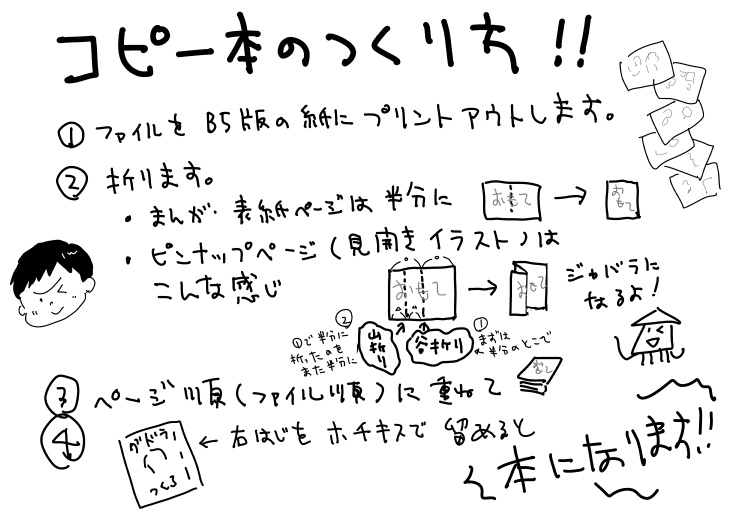 コピー本のつくりち!!
① ファイルを B5版の紙に プリントアウトします。
② 折ります。
・まんが・表紙ページは 半分に
おもて → おもて
・ピンナップページ(見開きイラスト)は
こんな感じ
おもて → おもて
ジャバラに
なるよ!
②
①で半分に
折ったのを
また半分に
山折り
谷折り
①
まずは
半分のとこで
③ ページ順(ファイル順)に 重ねて
おもて
④ ← 右はじを ホチキスで 留めると
つくろ
本になります!!